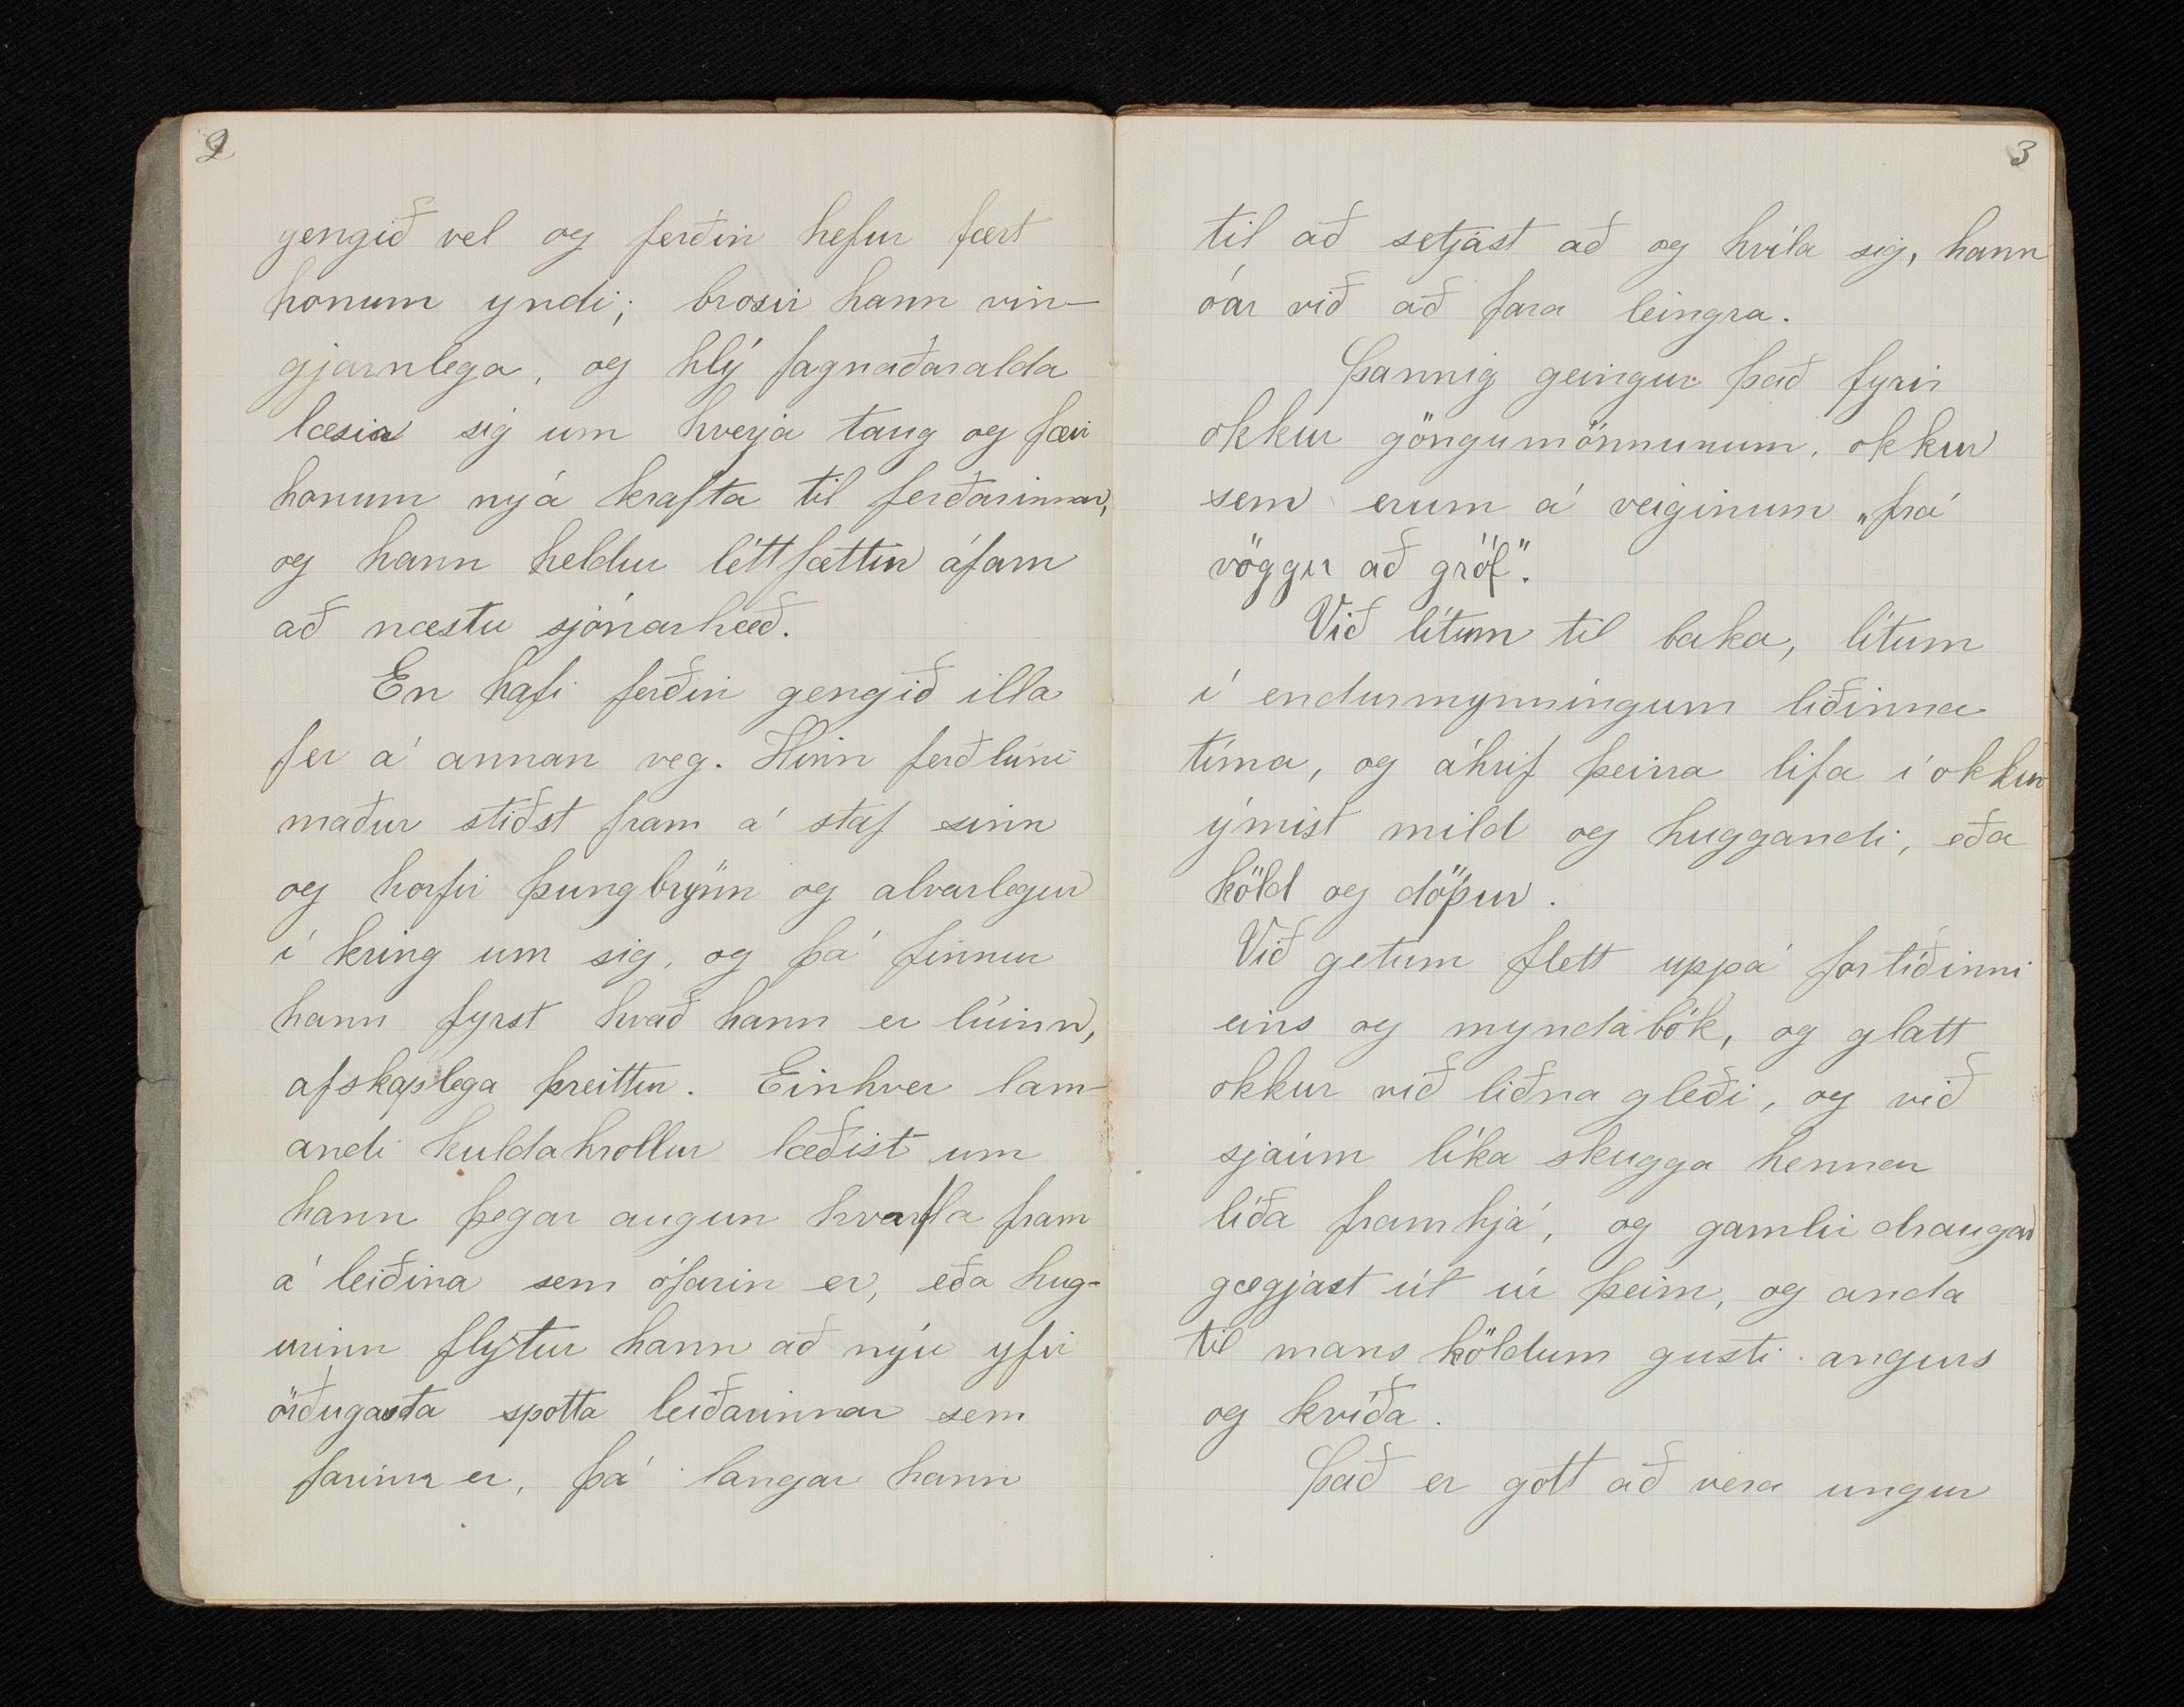 2
gengið vel og ferðin hefur fært
honum yndi; brosir hann vin-
gjarnlega, og hlý fagnaðaralda
læsir sig um hverja taug og færi
honum nýa krafta til ferðarinnar,
og hann heldur léttfættur áfam
að næstu sjónarhæð.
En hafi ferðin gengið illa
fer á annan veg. Hinn ferðlúni
maður stiðst fram á staf sinn
og horfir þungbrýnn og alvarlegur
í kring um sig, og þá finnur
hann fyrst hvað hann er lúinn,
afskaplega þreittur. Einhver lam-
andi kuldahrollur læðist um
hann þegar augun hvarfla fram
á leiðina sem ófarin er, eða hug-
urinn flytur hann að nýu yfir
örðugasta spotta leiðarinnar sem
farinn er, þá langar hann
3
til að setjast að og hvíla sig, hann
óar við að fara leingra.
Þannig geingur það fyrir
okkur göngumönnunum, okkur
sem erum á veiginum „frá
vöggu að gröf".
Við lítum til baka, lítum
í endurmynningum liðinna
tíma, og áhrif þeirra lifa í okkur
ýmist mild og huggandi, eða
köld og döpur.
Við getum flett uppá fortíðinni
eins og myndabók, og glatt
okkur við liðna gleði, og við
sjáum líka skugga hennar
líða framhjá, og gamlir draugar
gægjast út úr þeim, og anda
til mans köldum gusti angurs
og kvíða.
Það er gott að vera ungur